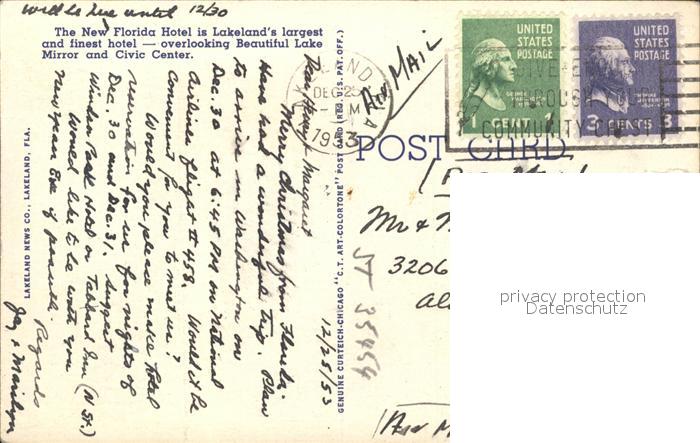 Will be here until 12/30
The New Florida Hotel is Lakeland's largest
and finest hotel — overlooking Beautiful Lake
Mirror and Civic Center.
12/25/53
Dear Harry & Margaret
Merry Christmas from Florida.
Have had a wonderful trip. Plan
to arrive in Washington on
Dec. 30 at 6:45 PM on National
Airlines flight # 458. Would it be
convenient for you to meet us?
Would you please make hotel
reservation for us for nights of
Dec. 30 and Dec. 31. Suggest
Winder Park Hotel or Tabbard Inn (N St.)
Would like to be with you
New Years Eve if possible.
Regards
Jay & Marilyn
LAKELAND NEWS CO., LAKELAND, FLA.
GENUINE CURTEICH-CHICAGO "C.T. ART-COLORTONE" POST CARD (REG. U.S. PAT. OFF.)
DEC 25
PM
1953
Air Mail
UNITED
STATES
POSTAGE
1 CENT 1
UNITED
STATES
POSTAGE
3 CENTS 3
POST CARD
Mr &
3206
35454
Air M
privacy protection
Datenschutz